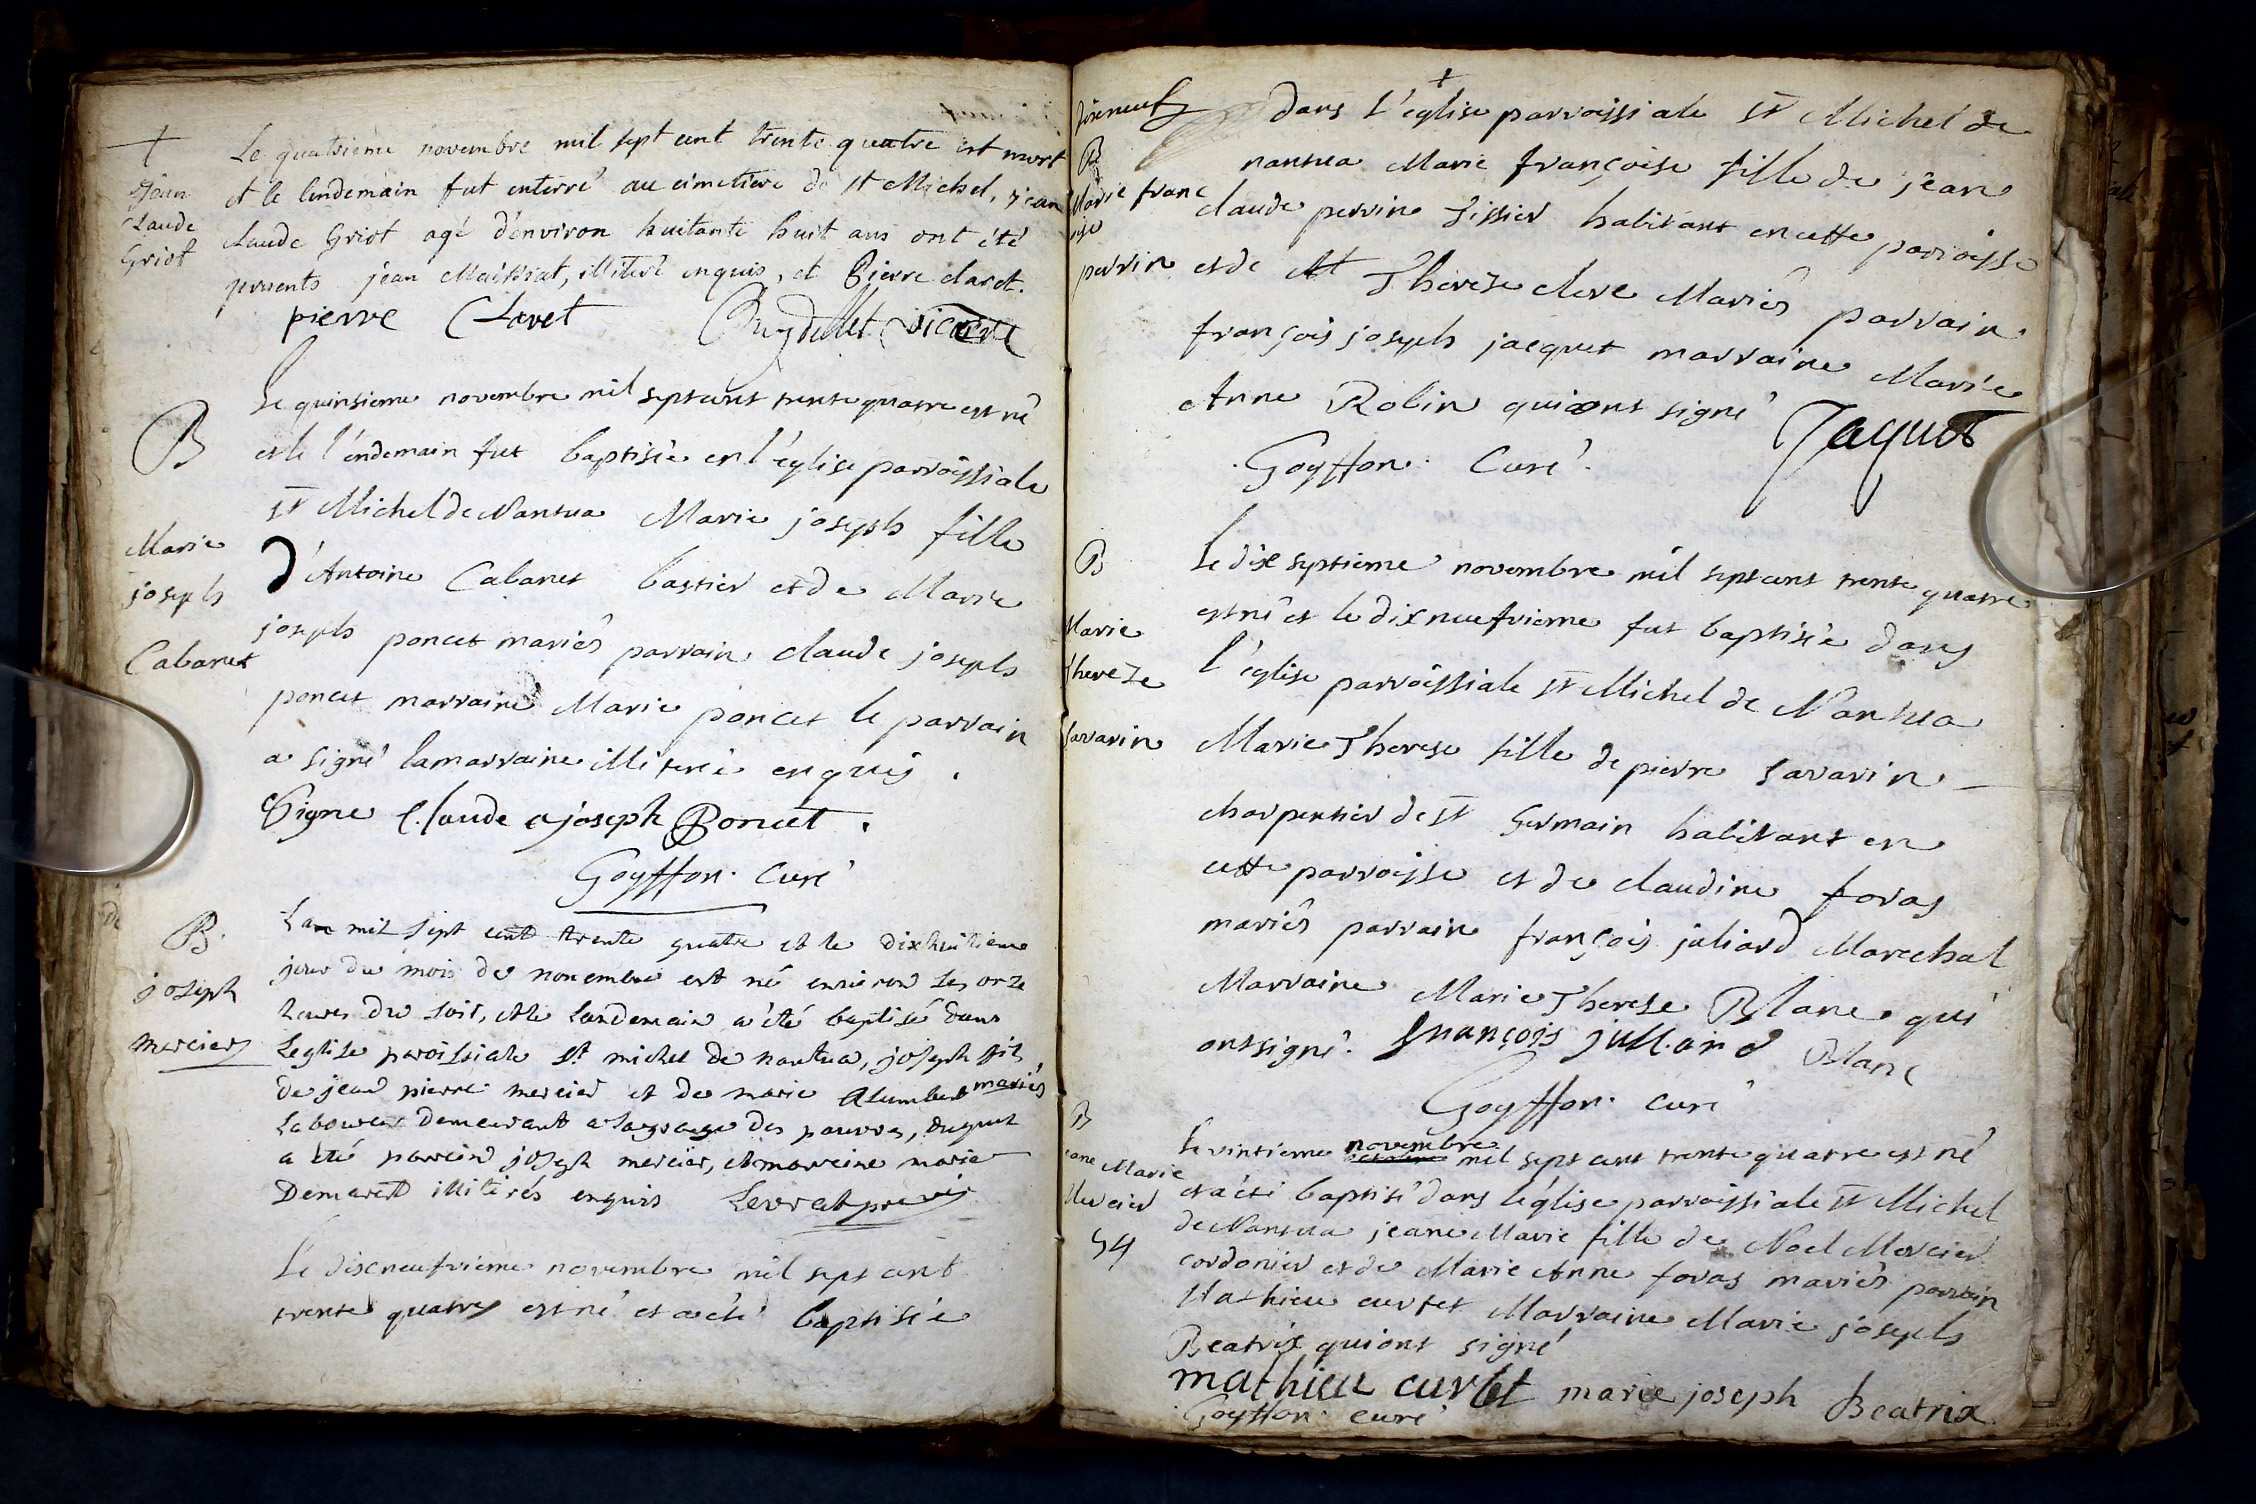 +
Le quatrième novembre mil sept cent trente quatre est mort
et le lendemain fut enterré au cimetiere de st Michel, jean
Jean
Claude
Griot
claude Griot agé d'environ huitante huit ans ont été
presents jean Maissiat, illiteré enquis, et Pierre claret.
pierre Claret vicaire
B
Le quinsieme novembre mil septcent trente quatre est né
et le l'endemain fut baptisée en l'église parroissiale
st Michel de Nantua Marie joseph fille
Marie
joseph
Cabanet
d'Antoine Cabanet bastier et de Marie
joseph poncet mariés parrain claude joseph
poncet marraine Marie poncet le parrain
a signé la marraine illiterée enquis.
Signe Claude joseph Poncet.
Goyffon. Curé
B.
joseph
mercier
Lan mil sept cent trente quatre et le dixhuitieme
jour du mois de nouembre est né enuiron les onze
heures du soir, et le landemain a été baptisé dans
Leglise paroissiale st michel de nantua, joseph fils
de jean pierre mercier et de marie Alumbert mariés
Laboureur demeurant a la grange des pauvres, duquel
a été parrein joseph mercier, et marreine marie
Demaret illiterés enquis
Le dixneufvieme novembre mil sept cent
trente quatre est né et a été baptisée
dixneuf +
dans l'église parroissiale st Michel de
B
Marie franc
oise
perrin
nantua Marie françoise fille de jean
claude perrin tissier habitant en cette parroisse
et de Therese clere Mariés parrain
françois joseph jacquet marraine Marie
Anne Robin qui ont signé Jaquet
Goyffon. Curé.
B
Marie
Thereze
Savarin
Le dix septieme novembre mil septcent trente quatre
est né et le dixneufvieme fut baptisée dans
l'église parroissiale st Michel de Nantua
Marie Therese fille de pierre savarin
charpentier de st Germain habitant en
cette parroisse et de claudine foras
mariés parrain françois juliard Marechal
Marraine Marie Therese Blanc qui
ont signé. François Julliard Blanc
Goyffon. curé
B
Jeane Marie
Mercier
54
Le vintieme novembre mil sept cent trente quatre est né
et a été baptisé dans l'église parroissiale st Michel
de Nantua jeane Marie fille de Noel Mercier
cordonier et de Marie Anne foras mariés parrain
Mathieu curtet Marraine Marie joseph
Beatrix qui ont signé
mathieu curtet marie joseph Beatrix
Goyffon. curé